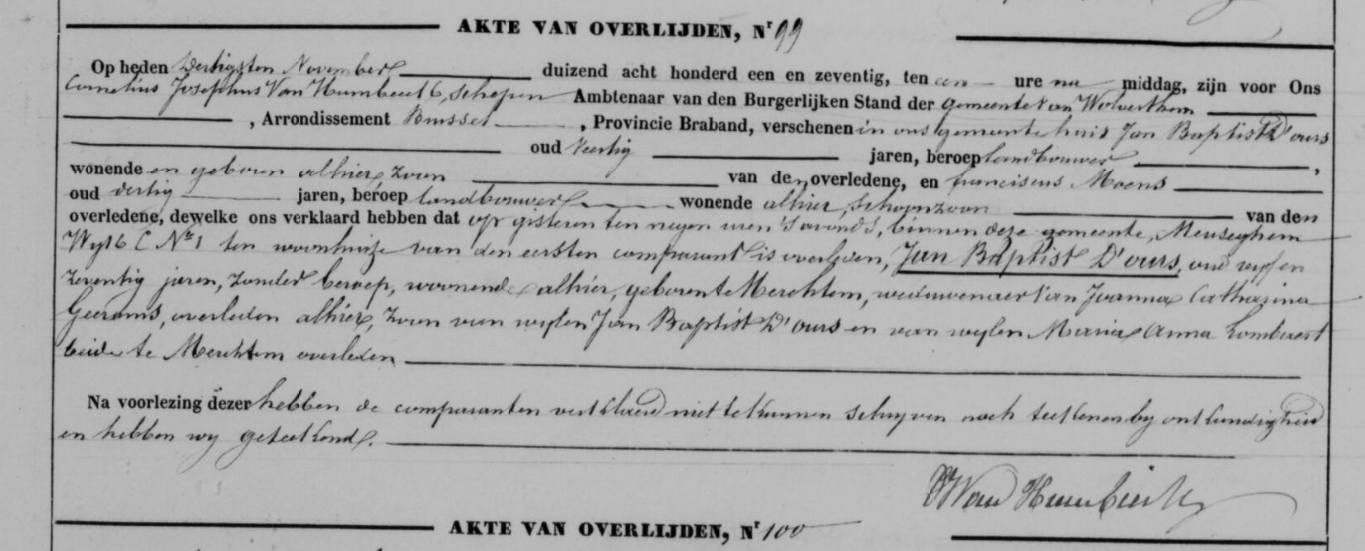 AKTE VAN OVERLIJDEN, Nr 99
Op heden Dertigsten November duizend acht honderd een en zeventig, ten een ure na middag, zijn voor Ons
Cornelius Josephus Van Humbeeck, schepen Ambtenaar van den Burgerlijken Stand der gemeente van Wolverthem
, Arrondissement Brussel , Provincie Braband, verschenen in ons gemeente huis Jan Baptist D'ours
oud Veertig jaren, beroep landbouwer ,
wonende en geboren alhier, zoon van den overledene, en franciscus Moens
oud dertig jaren, beroep landbouwer wonende alhier, schoonzoon van den
overledene, dewelke ons verklaard hebben dat op gisteren ten negen uren 's avonds, binnen deze gemeente, Meuseghem
Wyk C No 1 ten woonhuize van den eersten comparant is overleden, Jan Baptist D'ours, oud vyf en
zeventig jaren, zonder beroep, woonende alhier, geboren te Merchtem, weduwenaer van Joanna Catharina
Geeroms, overleden alhier, zoon van wylen Jan Baptist D'ours en van wylen Maria Anna Lombaert
beide te Merchtem overleden
Na voorlezing dezer hebben de comparanten verklaerd niet te kunnen schryven noch teekenen by onkundigheid
en hebben wy geteekend.
Van Humbeeck
AKTE VAN OVERLIJDEN, Nr 100